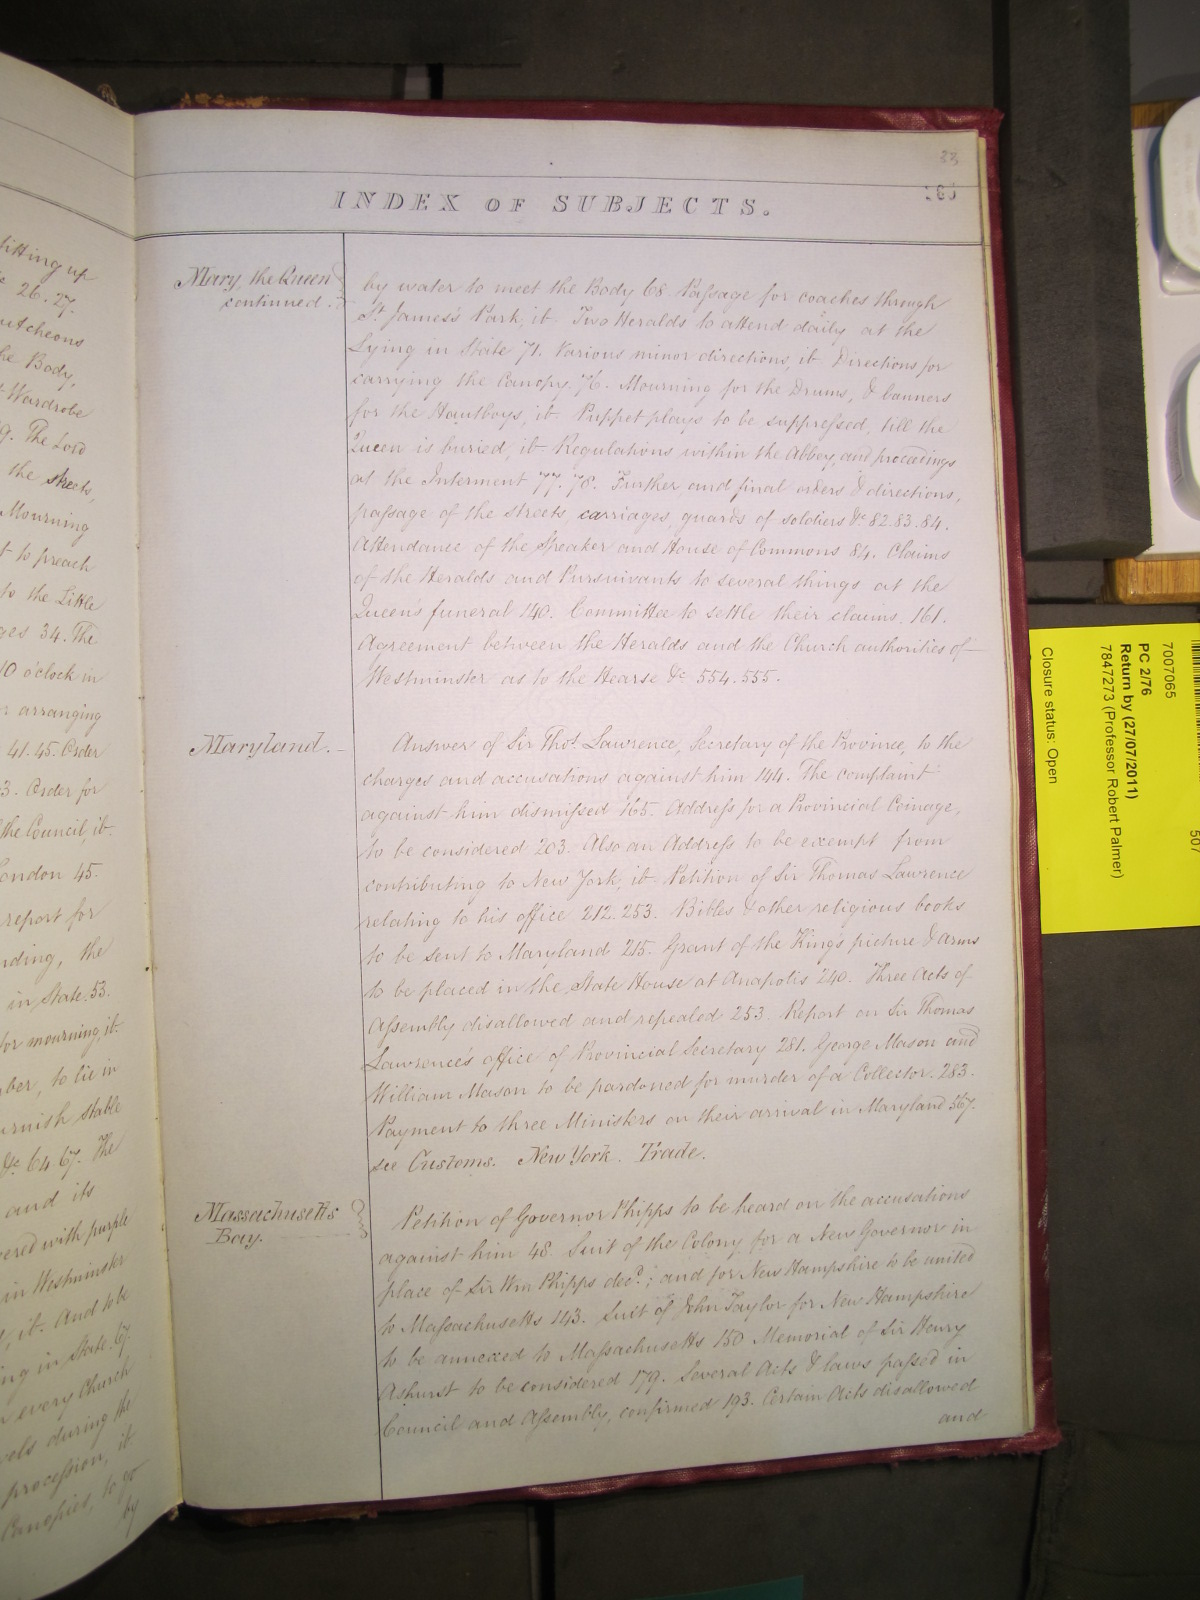 33
INDEX OF SUBJECTS.
Mary, the Queen
continued.
by water to meet the Body 68. Passage for coaches through
St. James's Park, ib. Two Heralds to attend daily at the
Lying in State 71. Various minor directions, ib. Directions for
carrying the Canopy. 76. Mourning for the Drums, & banners
for the Hautboys, ib. Puppet plays to be suppressed, till the
Queen is buried, ib. Regulations within the Abbey, and proceedings
at the Interment 77. 78. Further and final orders & directions,
passage of the streets, carriages, guards of soldiers &c. 82. 83. 84.
Attendance of the Speaker and House of Commons 84. Claims
of the Heralds and Pursuivants to several things at the
Queen's funeral 140. Committee to settle their claims, 161.
Agreement between the Heralds and the Church authorities of
Westminster as to the Hearse &c. 554. 555.
Maryland.
Answer of Sir Thos. Lawrence, Secretary of the Province, to the
charges and accusations against him 144. The complaint
against him dismissed 165. Address for a Provincial Coinage,
to be considered 203. Also an Address to be exempt from
contributing to New York, ib. Petition of Sir Thomas Lawrence
relating to his office 212. 253. Bibles & other religious books
to be sent to Maryland 215. Grant of the Kings picture & arms
to be placed in the State House at Anapolis 240. Three Acts of
Assembly disallowed and repealed 253. Report on Sir Thomas
Lawrences office of Provincial Secretary 281. George Mason and
William Mason to be pardoned for murder of a Collector. 283.
Payment to three Ministers on their arrival in Maryland 567.
see Customs. New York. Trade.
Massachusetts
Bay.
Petition of Governor Phipps to be heard on the accusations
against him 48. Suit of the Colony for a New Governor in
place of Sir Wm Phipps decd.; and for New Hampshire to be united
to Massachusetts 143. Suit of John Taylor for New Hampshire
to be annexed to Massachusetts 150 Memorial of Sir Henry
Ashurst to be considered 179. Several Acts & laws passed in
Council and Assembly, confirmed 193. Certain Acts disallowed
and
fitting up
26. 27.
utcheons
he Body,
Wardrobe
9. The Lord
the streets,
Mourning
t to preach
to the Little
ges 34. The
10 o'clock in
arranging
41. 45. Order
3. Order for
the Council, ib.
London 45.
report for
nding, the
in State. 53.
for mourning, ib.
ber, to lie in
urnish stable
&c. 64. 67. The
and its
vered with purple
in Westminster
, ib. And to be
ng in State. 67.
every Church
vels during the
procession, ib.
Canopies, to go
by
7007065
PC 2/76
Return by (27/07/2011)
7847273 (Professor Robert Palmer)
Closure status: Open
507